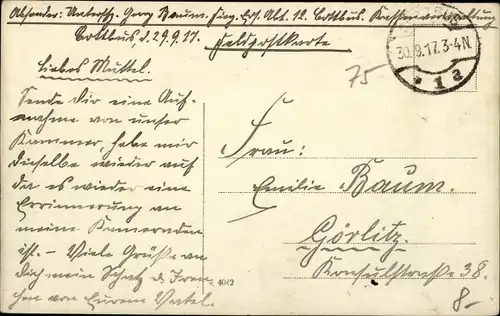 Absender: Unteroffz. Georg Baum. Flieg. Ers. Abt. 12. Cottbus. Kassenverwaltung
Cottbus, d. 29.9.17.
Feldpostkarte
30.9.17.3-4N.
* 1 a
75
Liebes Muttel.
Sende Dir eine Auf-
nahme von unser
Kammer, habe mir
dieselbe wieder auf
da es wieder eine
Errinnerung an
meine Kameraden
ist. - Viele Grüße an
Dich mein Schatz d.
von Eurem
Frau:
Emilie Baum.
Görlitz.
Konsulstrasse 38.
8-
4042